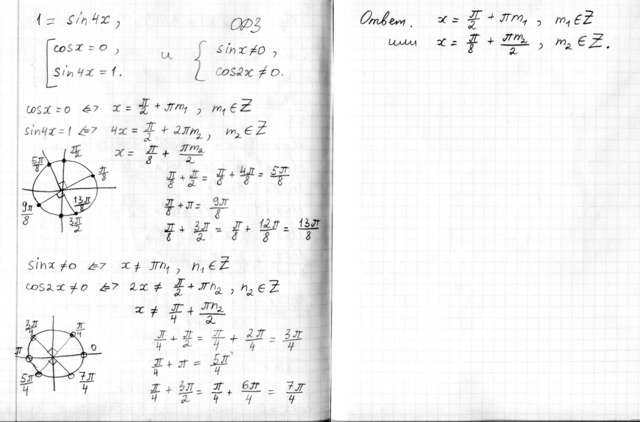 1 = sin4x,
ОДЗ
[ cosx = 0,
sin4x = 1.
и
{ sinx ≠ 0,
cos2x ≠ 0.
cosx = 0 <=> x = π/2 + πm₁, m₁ ∈ Z
sin4x = 1 <=> 4x = π/2 + 2πm₂, m₂ ∈ Z
x = π/8 + πm₂/2
5π/8 π/2 π/8
9π/8 13π/8 3π/2
π/8 + π/2 = π/8 + 4π/8 = 5π/8
π/8 + π = 9π/8
π/8 + 3π/2 = π/8 + 12π/8 = 13π/8
sinx ≠ 0 <=> x ≠ πn₁, n₁ ∈ Z
cos2x ≠ 0 <=> 2x ≠ π/2 + πn₂, n₂ ∈ Z
x ≠ π/4 + πn₂/2
3π/4 π/4
π 0
5π/4 7π/4
π/4 + π/2 = π/4 + 2π/4 = 3π/4
π/4 + π = 5π/4
π/4 + 3π/2 = π/4 + 6π/4 = 7π/4
Ответ. x = π/2 + πm₁, m₁ ∈ Z
или x = π/8 + πm₂/2, m₂ ∈ Z.